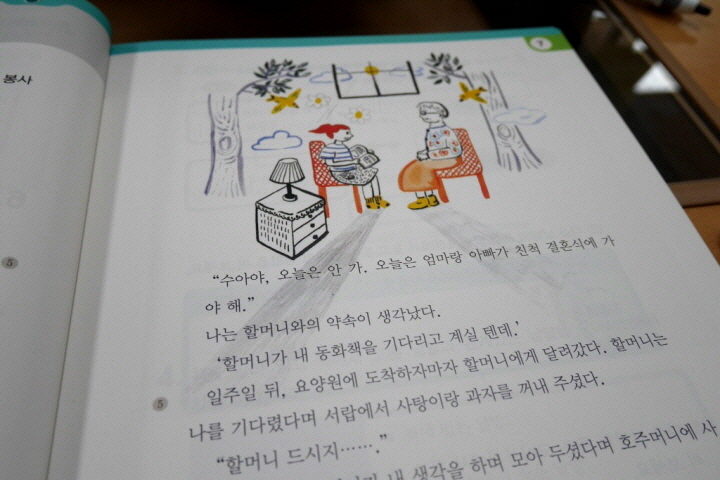 봉사
7
“수아야, 오늘은 안 가. 오늘은 엄마랑 아빠가 친척 결혼식에 가
야 해.”
나는 할머니와의 약속이 생각났다.
‘할머니가 내 동화책을 기다리고 계실 텐데.’
일주일 뒤, 요양원에 도착하자마자 할머니에게 달려갔다. 할머니는
5
나를 기다렸다며 서랍에서 사탕이랑 과자를 꺼내 주셨다.
“할머니 드시지…….”
내 생각을 하며 모아 두셨다며 호주머니에 사
5